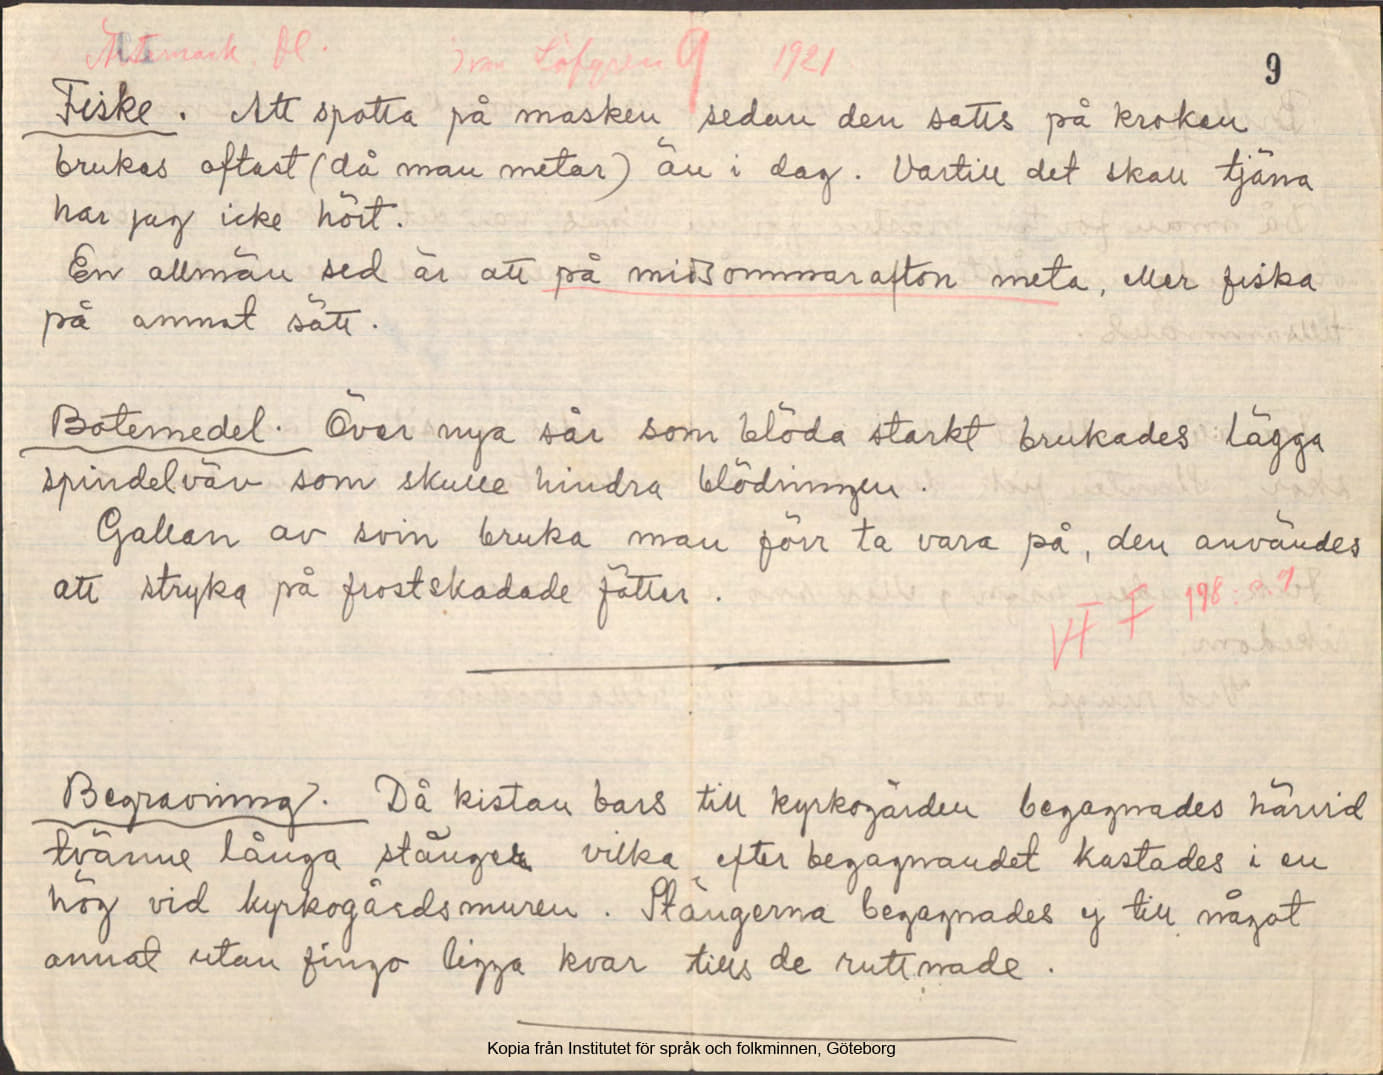 Ärtemark Dl. Ivar Löfgren 9 1921
9
Fiske. Att spotta på masken sedan den satts på kroken
brukas oftast (då man metar) än i dag. Vartill det skall tjäna
har jag icke hört.
En allmän sed är att på midsommarafton meta, eller fiska
på annat sätt.
Botemedel. Över nya sår som blöda starkt brukades lägga
spindelväv som skulle hindra blödningen.
Gallan av svin bruka man förr ta vara på, den användes
att stryka på frostskadade fötter.
VFF 198: s. 9
Begravning. Då kistan bars till kyrkogården begagnades härvid
tvänne långa stänger vilka efter begagnandet kastades i en
hög vid kyrkogårdsmuren. Stängerna begagnades ej till något
annat utan fingo ligga kvar tills de ruttnade.
Kopia från Institutet för språk och folkminnen, Göteborg